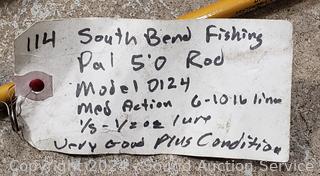 114 South Bend Fishing
Pal 5'0 Rod
Model D124
Med Action 6-10 lb line
1/8 - 1/2 oz lure
Very Good Plus Condition
Copyright 2024 - Sound Auction Service